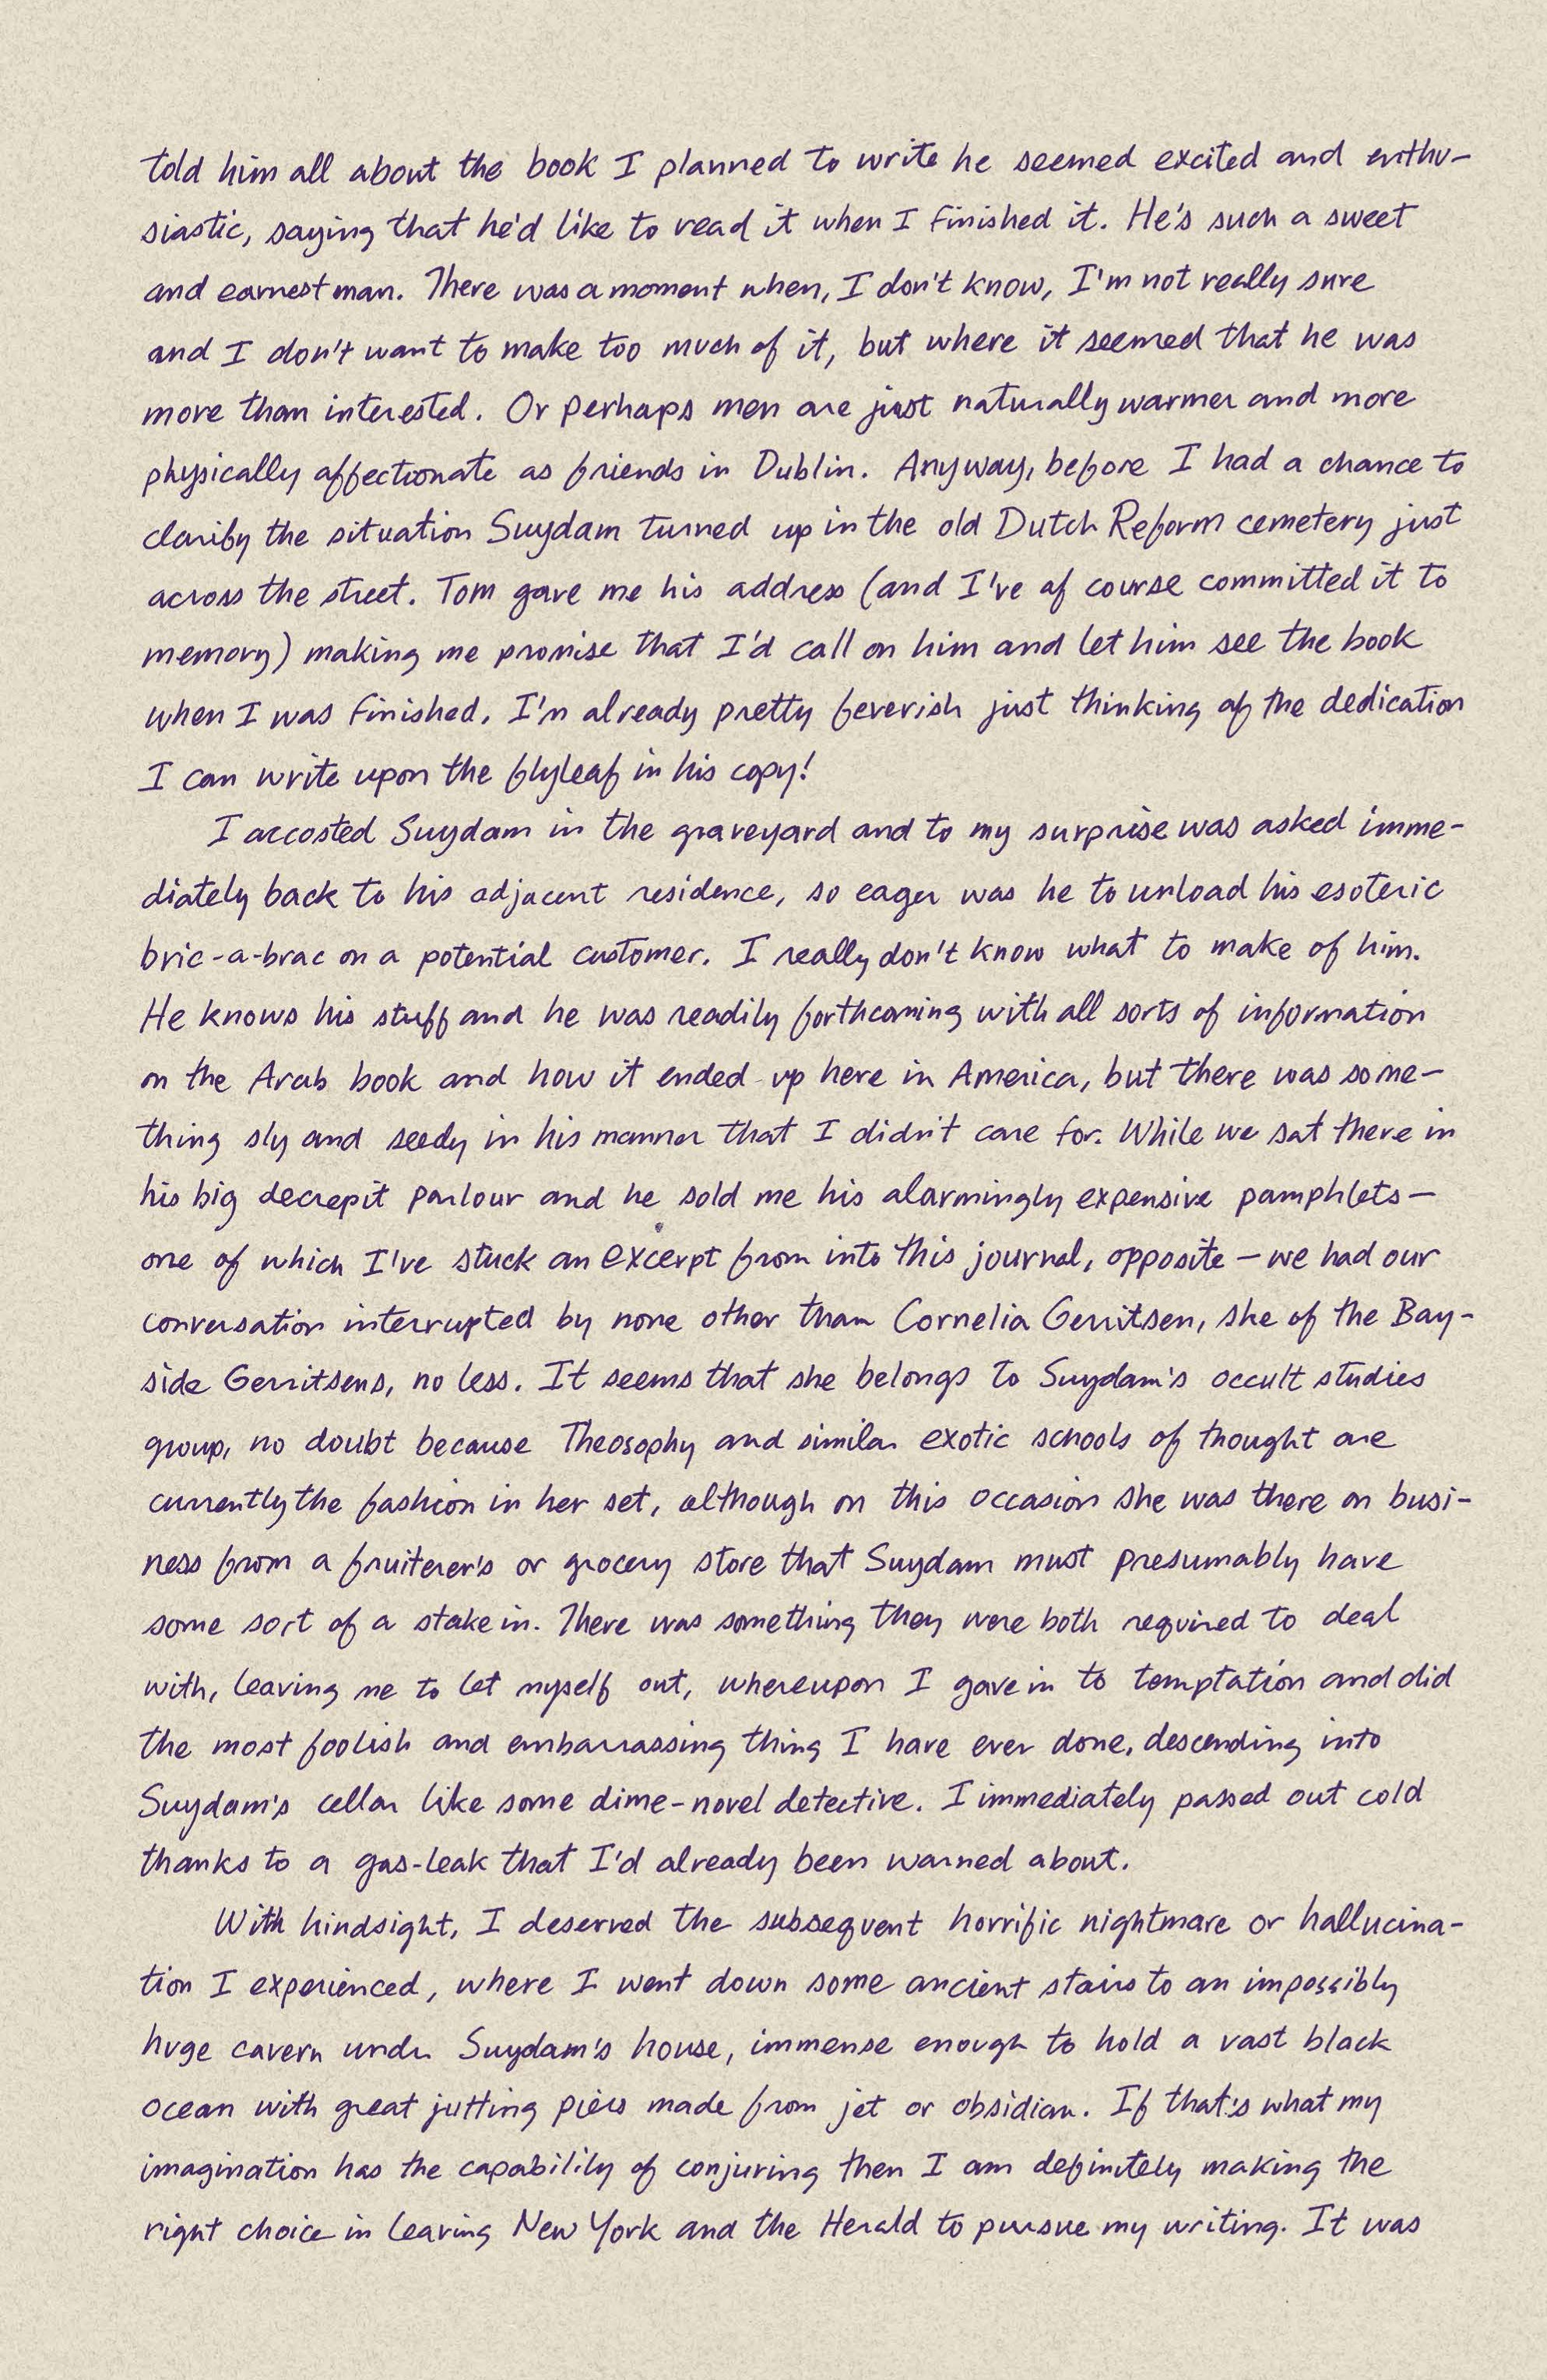 told him all about the book I planned to write he seemed excited and enthu-
siastic, saying that he'd like to read it when I finished it. He's such a sweet
and earnest man. There was a moment when, I don't know, I'm not really sure
and I don't want to make too much of it, but where it seemed that he was
more than interested. Or perhaps men are just naturally warmer and more
physically affectionate as friends in Dublin. Anyway, before I had a chance to
clarify the situation Suydam turned up in the old Dutch Reform cemetery just
across the street. Tom gave me his address (and I've of course committed it to
memory) making me promise that I'd call on him and let him see the book
when I was finished. I'm already pretty feverish just thinking of the dedication
I can write upon the flyleaf in his copy!
I accosted Suydam in the graveyard and to my surprise was asked imme-
diately back to his adjacent residence, so eager was he to unload his esoteric
bric-a-brac on a potential customer. I really don't know what to make of him.
He knows his stuff and he was readily forthcoming with all sorts of information
on the Arab book and how it ended up here in America, but there was some-
thing sly and seedy in his manner that I didn't care for. While we sat there in
his big decrepit parlour and he sold me his alarmingly expensive pamphlets—
one of which I've stuck an excerpt from into this journal, opposite — we had our
conversation interrupted by none other than Cornelia Gerritsen, she of the Bay-
side Gerritsens, no less. It seems that she belongs to Suydam's occult studies
group, no doubt because Theosophy and similar exotic schools of thought are
currently the fashion in her set, although on this occasion she was there on busi-
ness from a fruiterer's or grocery store that Suydam must presumably have
some sort of a stake in. There was something they were both required to deal
with, leaving me to let myself out, whereupon I gave in to temptation and did
the most foolish and embarrassing thing I have ever done, descending into
Suydam's cellar like some dime-novel detective. I immediately passed out cold
thanks to a gas-leak that I'd already been warned about.
With hindsight, I deserved the subsequent horrific nightmare or hallucina-
tion I experienced, where I went down some ancient stairs to an impossibly
huge cavern under Suydam's house, immense enough to hold a vast black
ocean with great jutting piers made from jet or obsidian. If that's what my
imagination has the capability of conjuring then I am definitely making the
right choice in leaving New York and the Herald to pursue my writing. It was